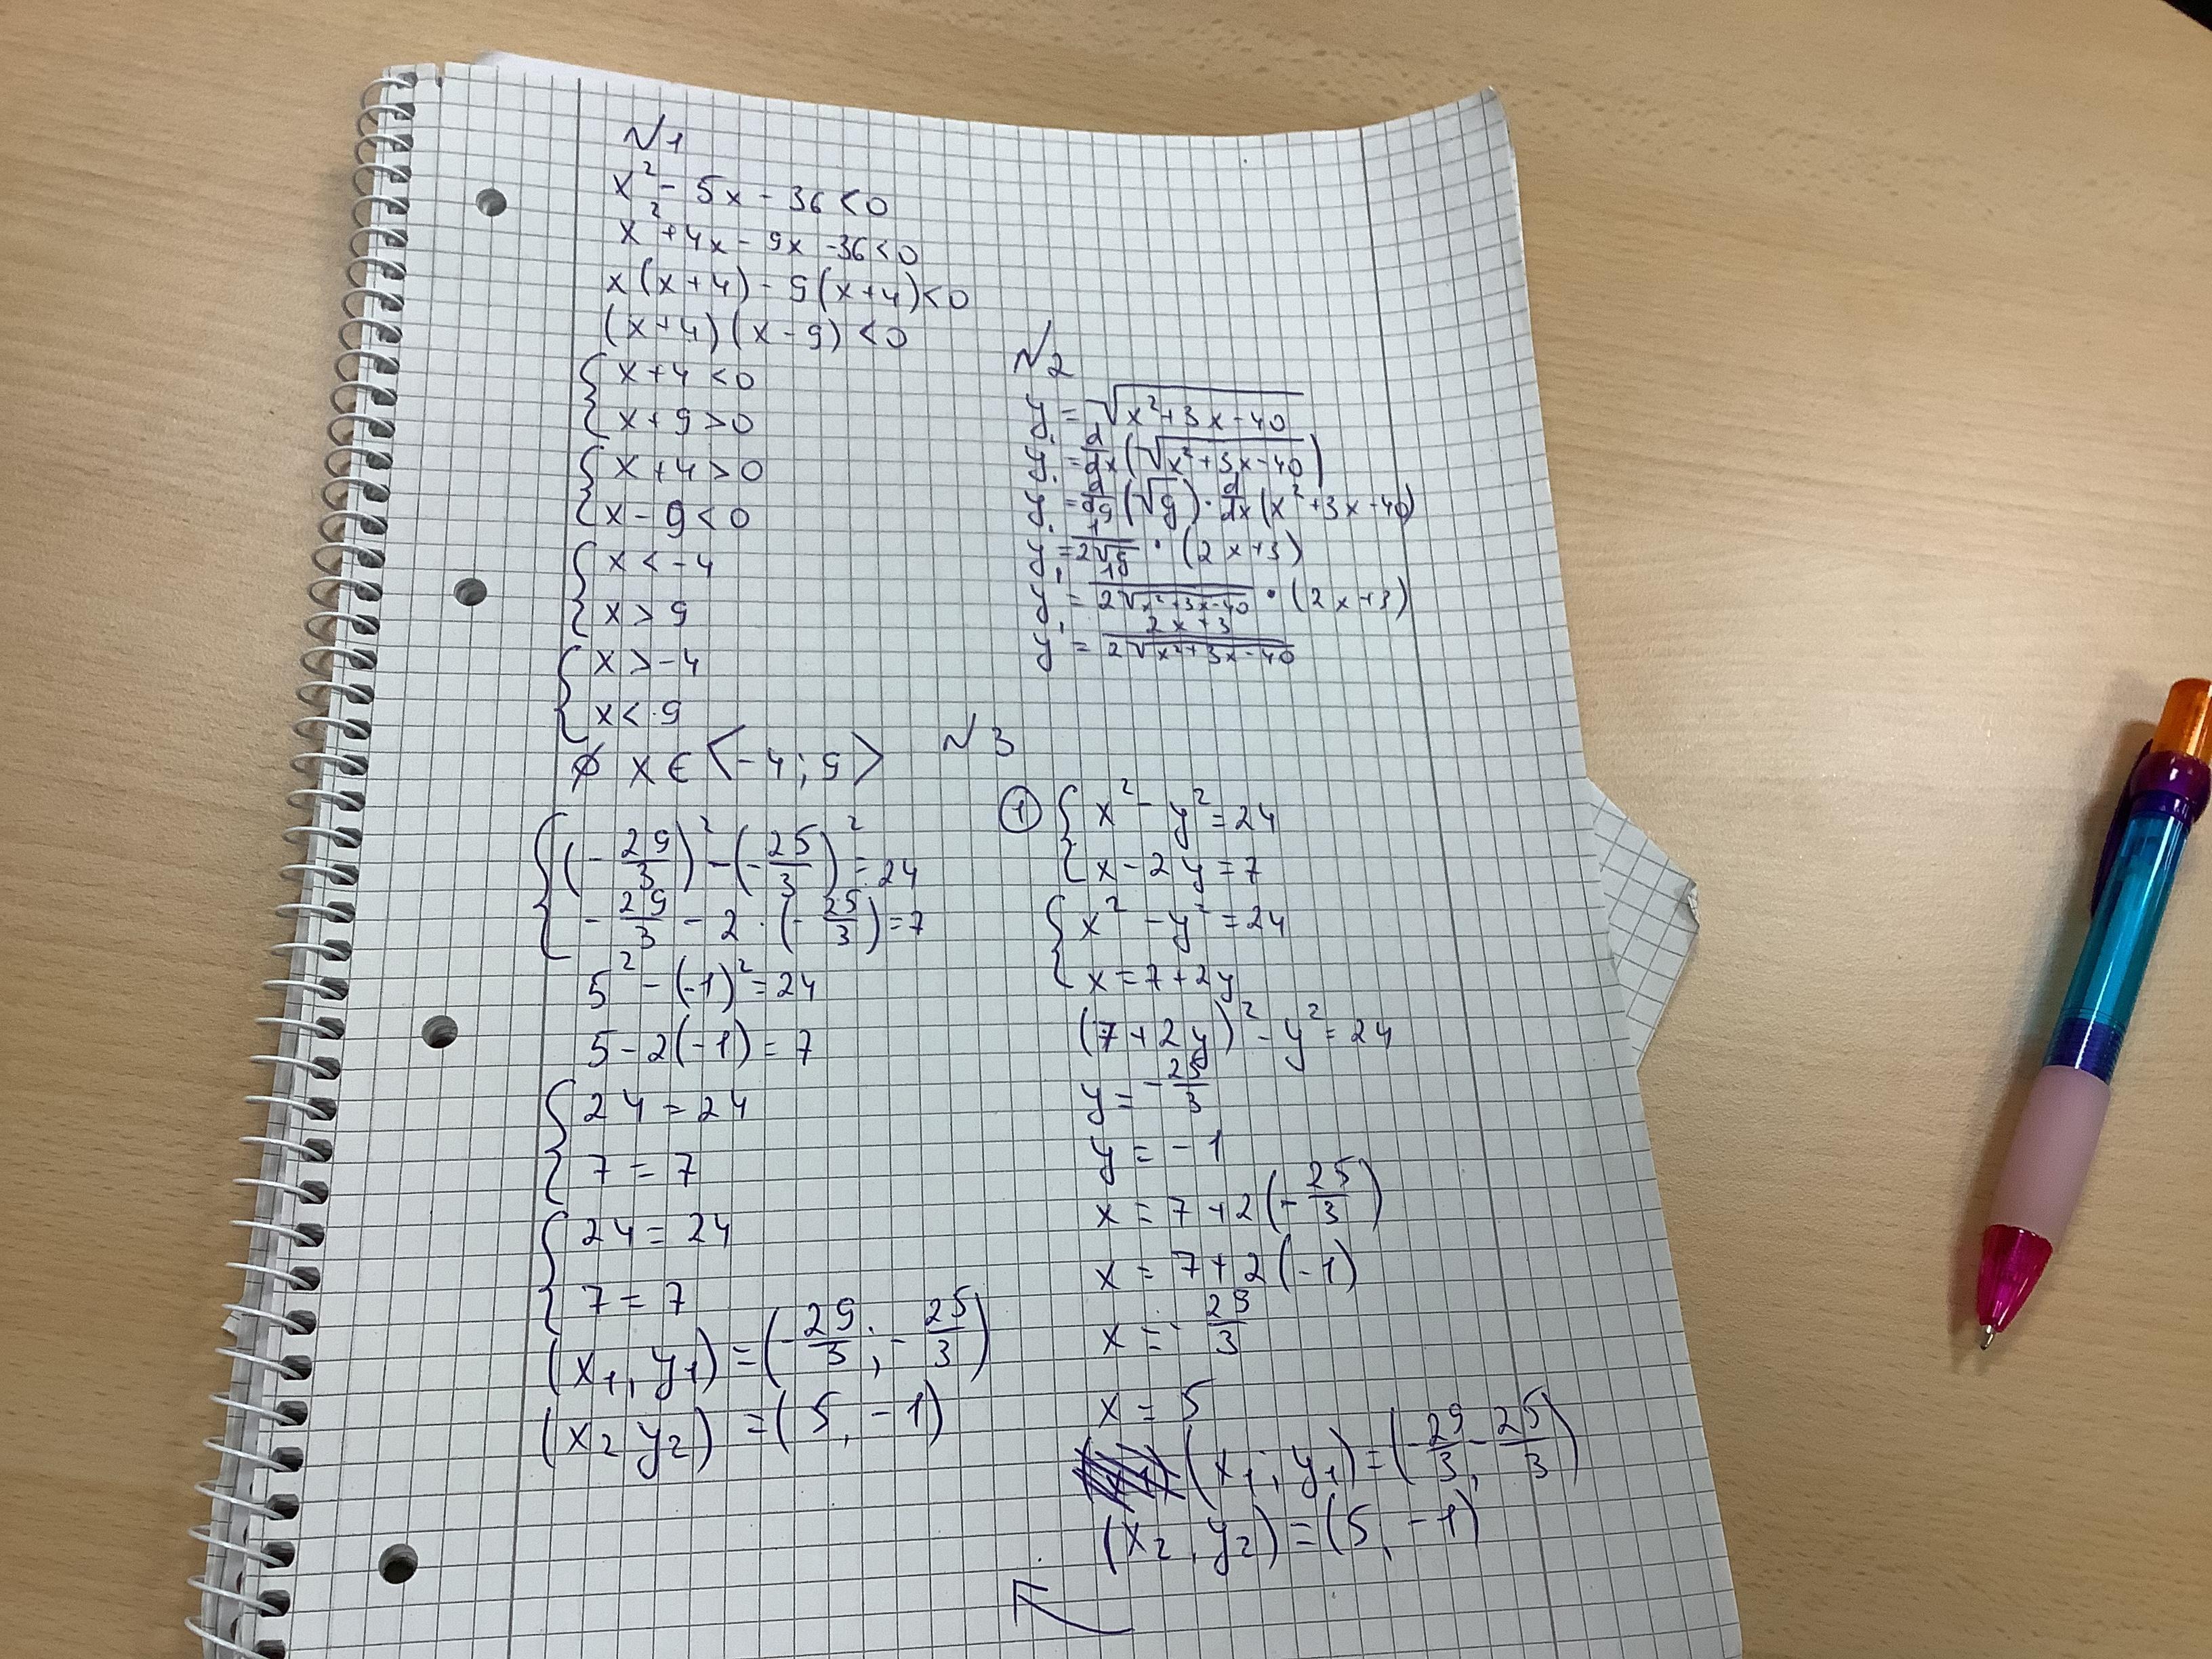 N1
x² - 5x - 36 < 0
x² + 4x - 9x - 36 < 0
x(x+4) - 9(x+4) < 0
(x+4)(x-9) < 0
{ x+4 < 0
x+9 > 0
{ x+4 > 0
x-9 < 0
{ x < -4
x > 9
{ x > -4
x < 9
∅ x ∈ <-4; 9>
N2
y = √(x²+3x-40)
y' = d/dx (√(x²+3x-40))
y' = d/dg (√g) · d/dx (x²+3x-40)
y' = 1/(2√g) · (2x+3)
y' = 1/(2√(x²+3x-40)) · (2x+3)
y' = (2x+3)/(2√(x²+3x-40))
N3
① { x² - y² = 24
x - 2y = 7
{ x² - y² = 24
x = 7+2y
(7+2y)² - y² = 24
y = -25/3
y = -1
x = 7+2(-25/3)
x = 7+2(-1)
x = -29/3
x = 5
(x1; y1) = (-29/3, -25/3)
(x2, y2) = (5, -1)
{ (-29/3)² - (-25/3)² = 24
-29/3 - 2 · (-25/3) = 7
5² - (-1)² = 24
5 - 2(-1) = 7
{ 24 = 24
7 = 7
{ 24 = 24
7 = 7
(x1, y1) = (-29/3; -25/3)
(x2 y2) = (5, -1)